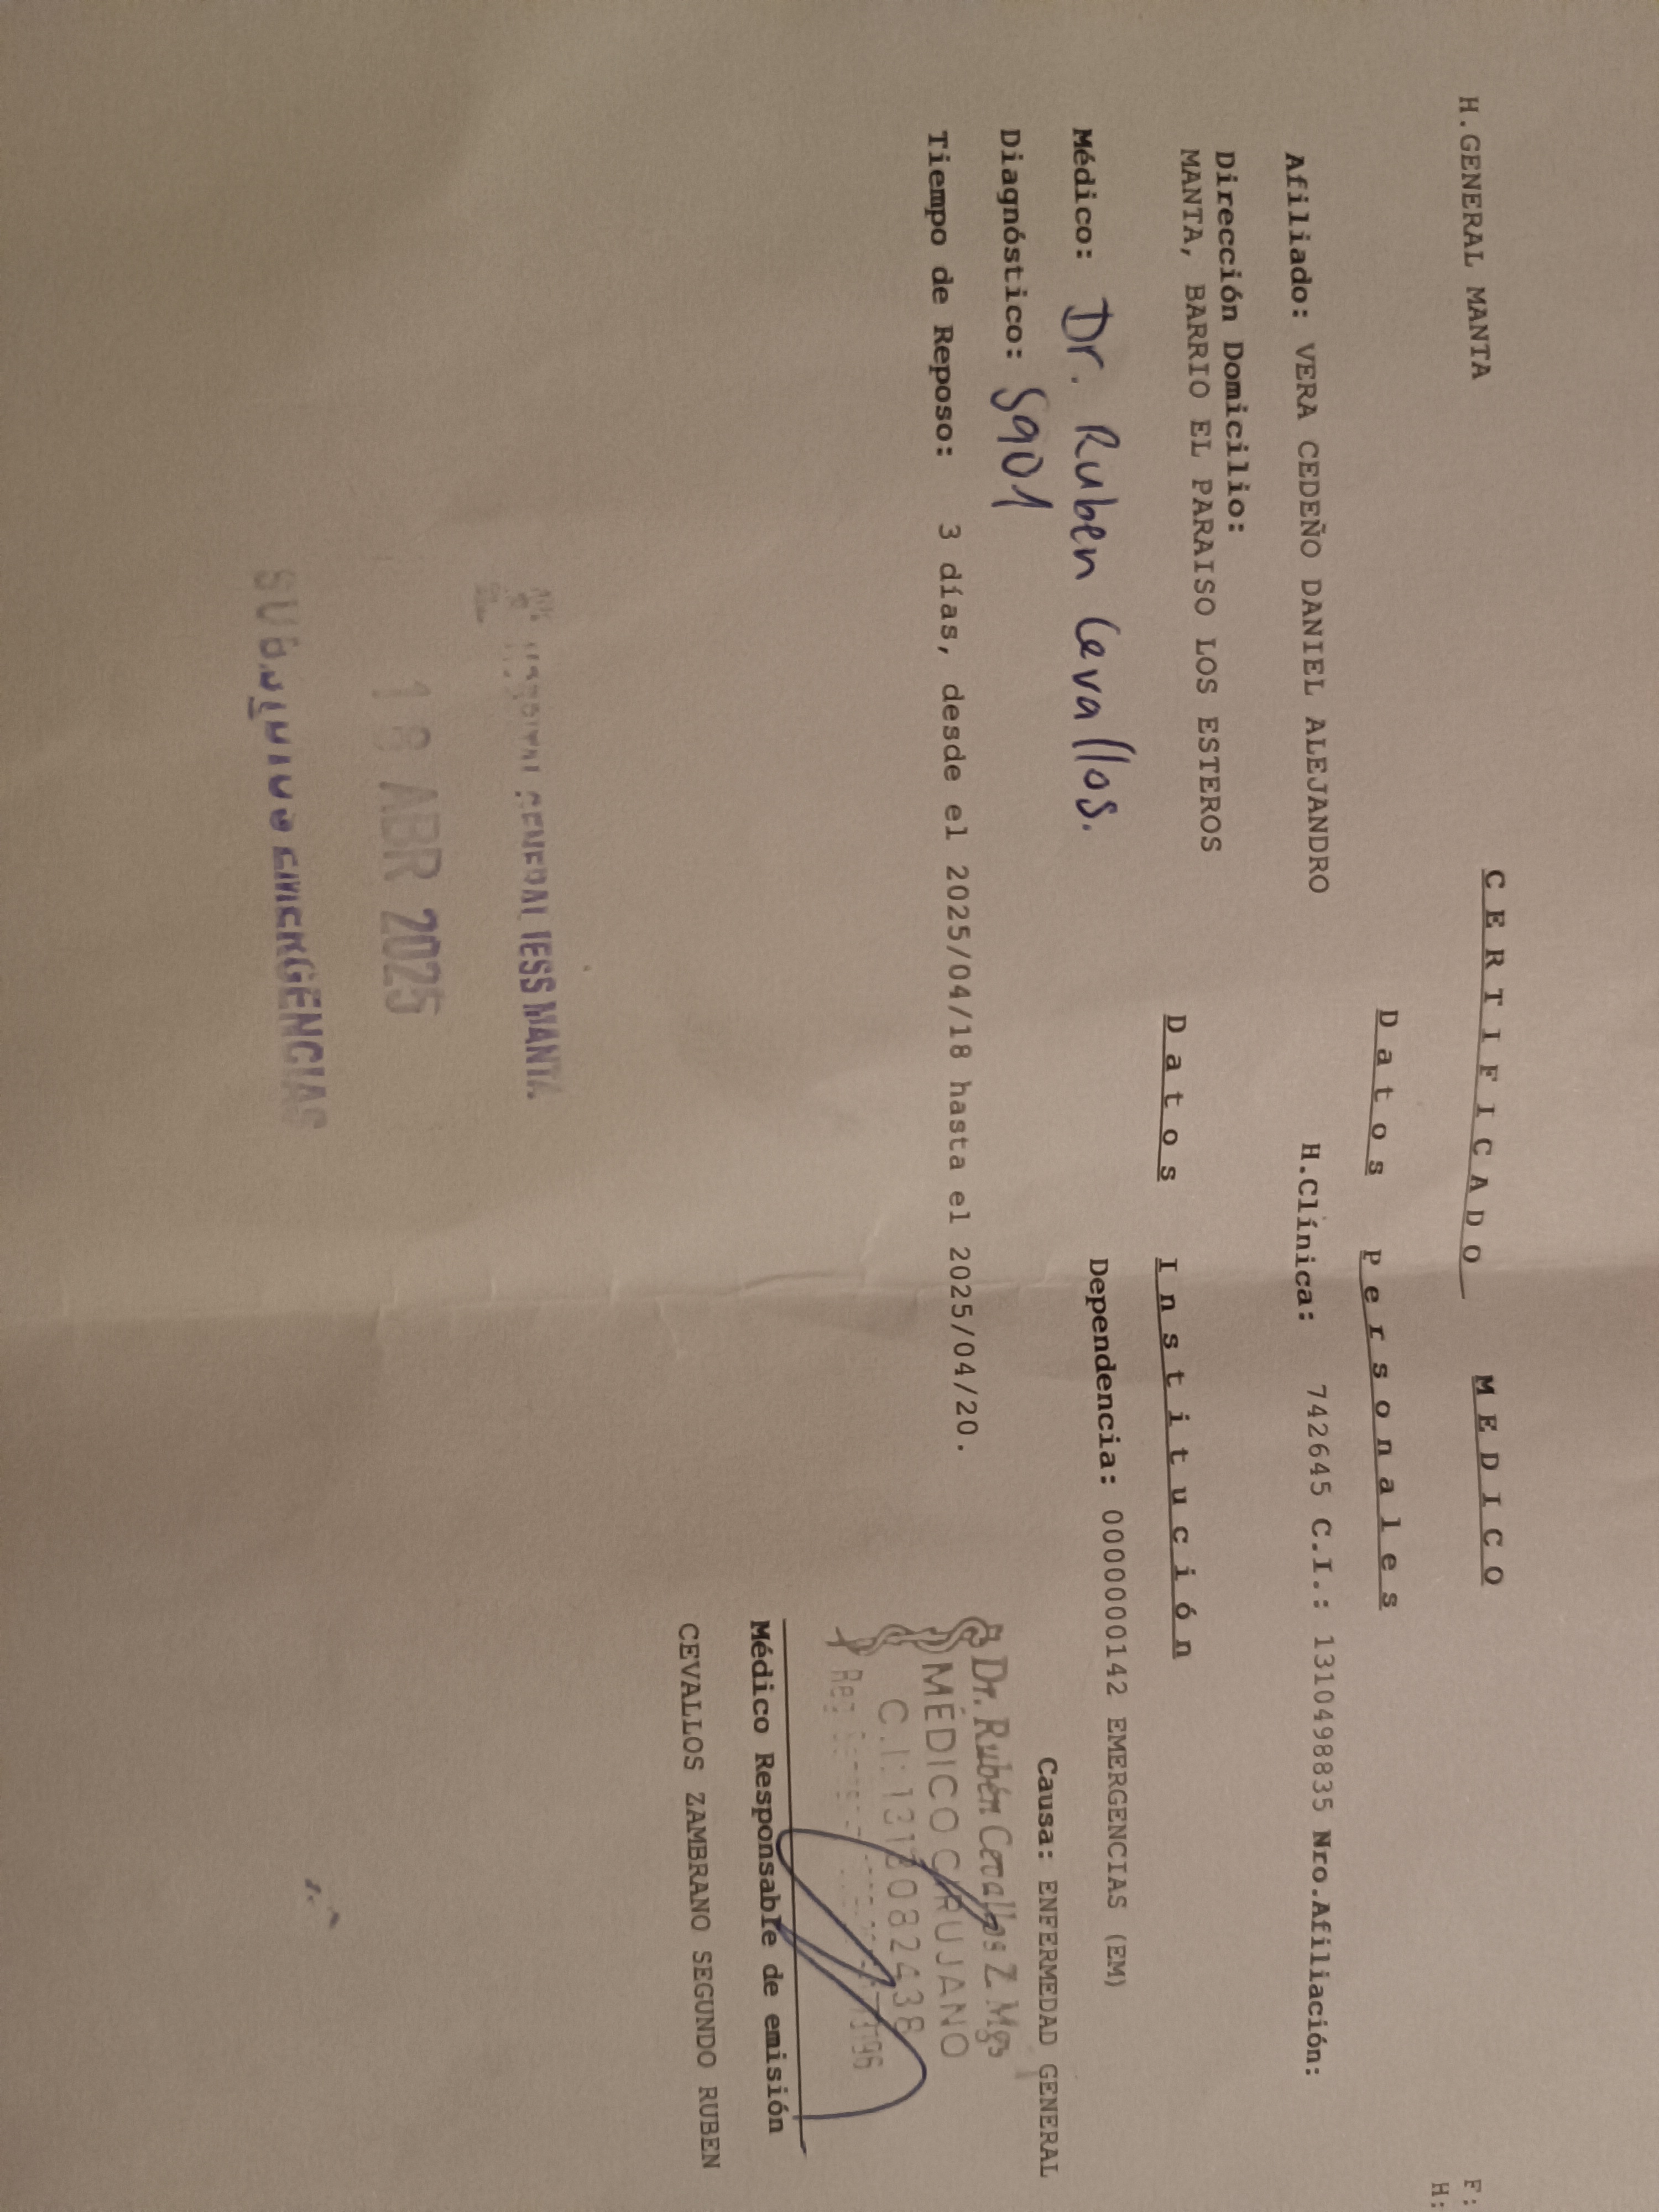 F:
H.GENERAL MANTA
CERTIFICADO MEDICO
H:
Datos Personales
Afiliado: VERA CEDEÑO DANIEL ALEJANDRO H.Clínica: 742645 C.I.: 1310498835 Nro.Afiliación:
Dirección Domicilio:
MANTA, BARRIO EL PARAISO LOS ESTEROS
Datos Institución
Médico: Dr. Ruben Cevallos. Dependencia: 0000000142 EMERGENCIAS (EM)
Diagnóstico: S901 Causa: ENFERMEDAD GENERAL
Tiempo de Reposo: 3 días, desde el 2025/04/18 hasta el 2025/04/20.
Dr. Rubén Cevallos Z. Mgs
MÉDICO CIRUJANO
C.I: 1313082438
Médico Responsable de emisión
CEVALLOS ZAMBRANO SEGUNDO RUBEN
HOSPITAL GENERAL IESS MANTA
18 ABR 2025
EMERGENCIAS